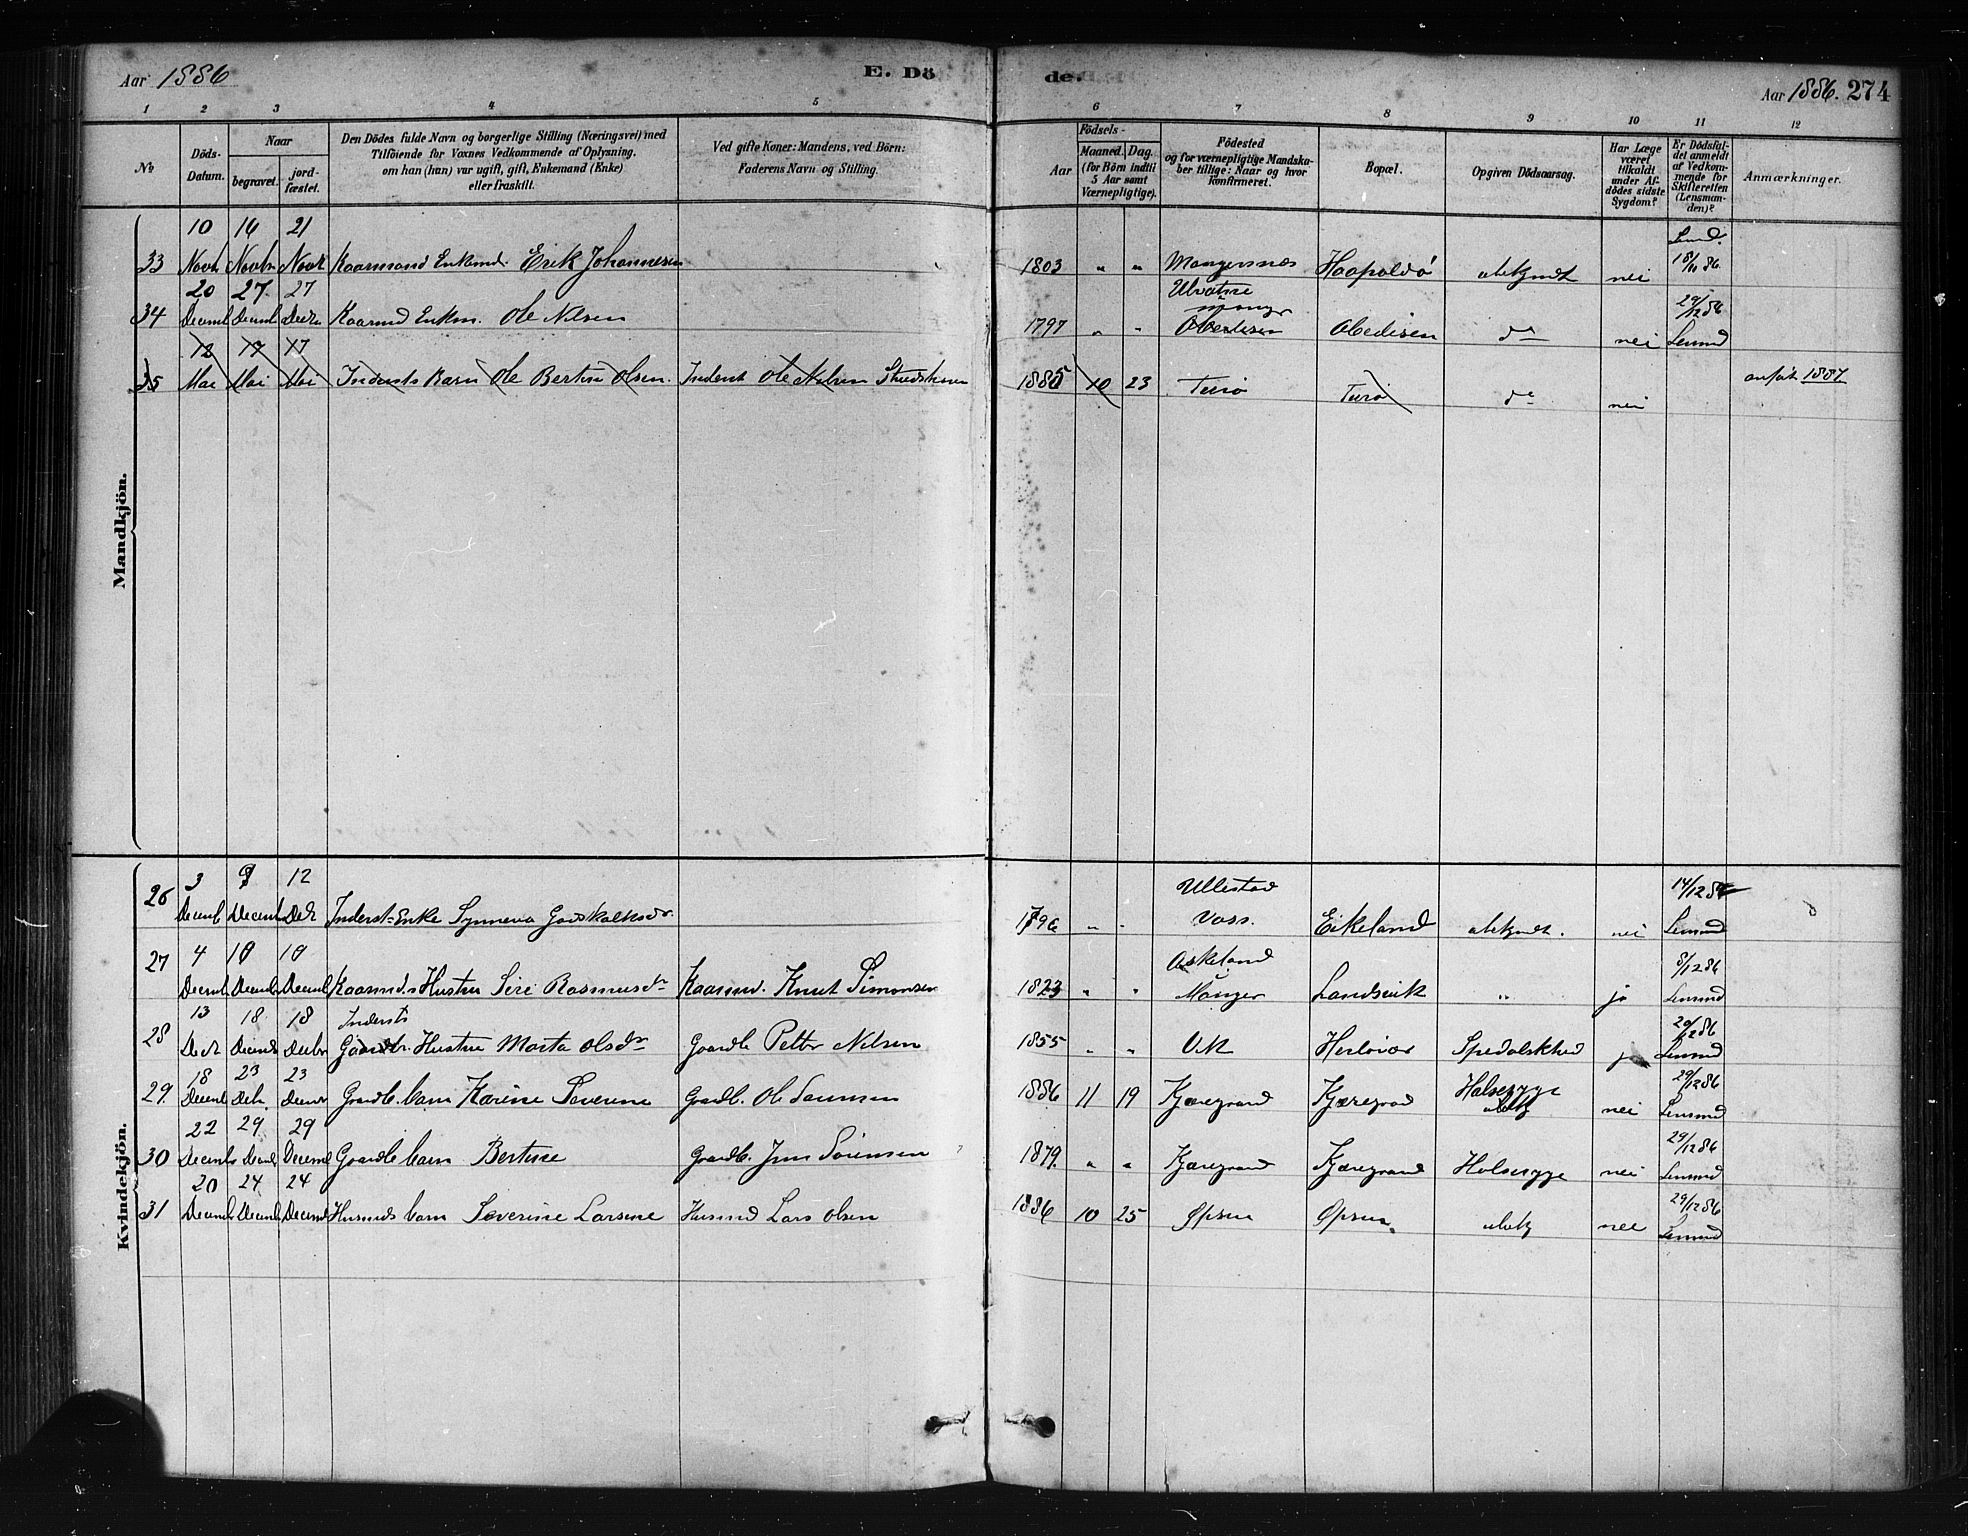 Aar 1886
E. Dö
de.
Aar 1886. 274
1 2 3 4 5 6 7 8 9 10 11 12
No
Döds-Datum.
Naar
begravet.
jord-fæstet.
Den Dödes fulde Navn og borgerlige Stilling (Næringsvei) med
Tilföiende for Voxnes Vedkommende af Oplysning,
om han (hun) var ugift, gift, Enkemand (Enke)
eller fraskilt.
Ved gifte Koner: Mandens, ved Börn:
Faderens Navn og Stilling.
Födsels-
Aar
Maaned. Dag.
(for Börn indtil
5 Aar samt
Værnepligtige).
Födested
og for værnepligtige Mandska-
ber tillige: Naar og hvor
Konfirmeret.
Bopæl.
Opgiven Dödsaarsag.
Har Læge
været
tilkaldt
under Af-
dödes sidste
Sygdom?
Er Dödsfal-
det anmeldt
af Vedkom-
mende for
Skifteretten
(Lensman-
den)?
Anmærkninger.
Mandkjön.
10 16 21
33 Novb Novbr Novb Kaarmand Enkemd. Erik Johannesen 1803 " " Mangersnæs Haapoldö ubekjendt nei 18/11 86
20 27 27
34 Decmb Decmb Decbr Kaarmd Enkm. Ole Nilsen 1797 " " Manger Obedisen Obedisen do nei 29/12 86 Lensmd
12 17 17
35 Mai Mai Mai Inderste Barn Ole Bertin Olsen. Inderst Ole Nilsen 1885 10 23 Turö Turö do nei anfört 1887
Kvindekjön.
3 9 12
26 Decmb Decemb Decb Inderst-Enke Synneva Godskalksdr. 1796 " " Ullestad Voss. Eikeland ubekjendt. nei 14/12 86 Lensmd
4 10 10
27 Decemb Decmb Decemb Kaarmds Hustru Siri Rasmusdr Kaarmd. Knut Simonsen 1823 " " Askeland Manger Landsvik " ja 8/12 86 Lensmd
13 18 18 Inderst
28 Decb Decmb Decbr Gaardb. Hustru Marta Olsdr Gaardb Petter Nilsen 1855 " " Uk Herlövær Spedalskhed ja 20/12 86 Lensmd
18 23 23
29 Decmb Decb. Decmbr Gaardb. barn Karine Severine Gaardb. Ole 1886 11 19 Kjæregaard Kjæregaard Halsesyge ubekj nei 29/12 86 Lensmd
22 29 29
30 Decemb Decmb Decemb Gaardb barn Bertine Gaardb. Jens Sörensen 1879. " " Kjæregaard Kjæregaard Halsesyge nei 29/12 86 Lensmd
20 24 24
31 Decmb Decmb Decmb Husmds barn Severine Larsine Husmd Lars Olsen 1886 10 25 Opsen Opsen ubekj nei 29/12 86 Lensmd